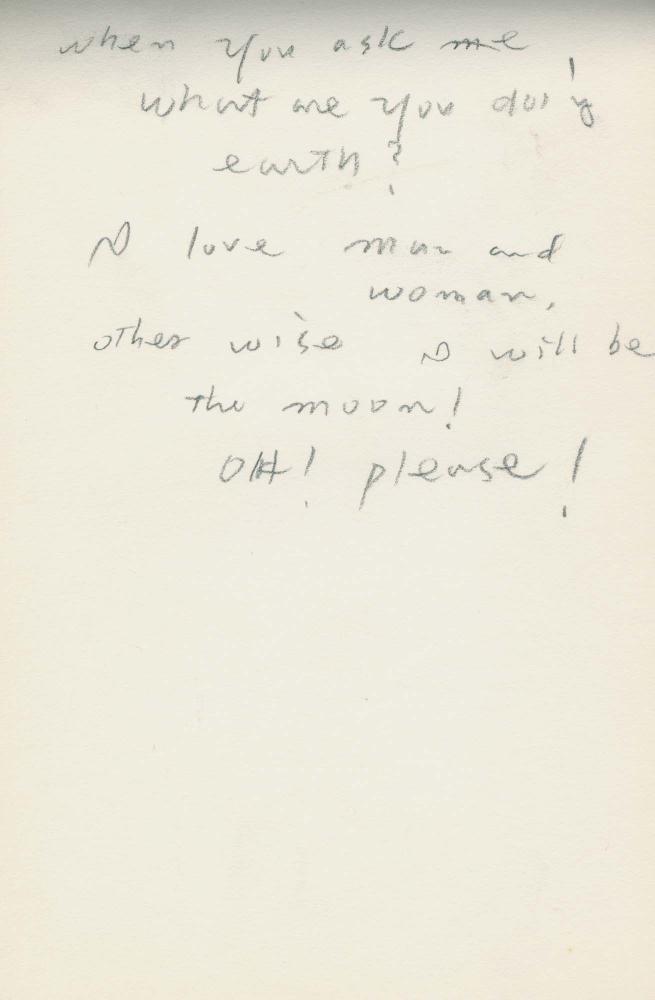 when you ask me,
what are you doing
earth?
I love man and
woman,
other wise I will be
the moon!
OH! please!